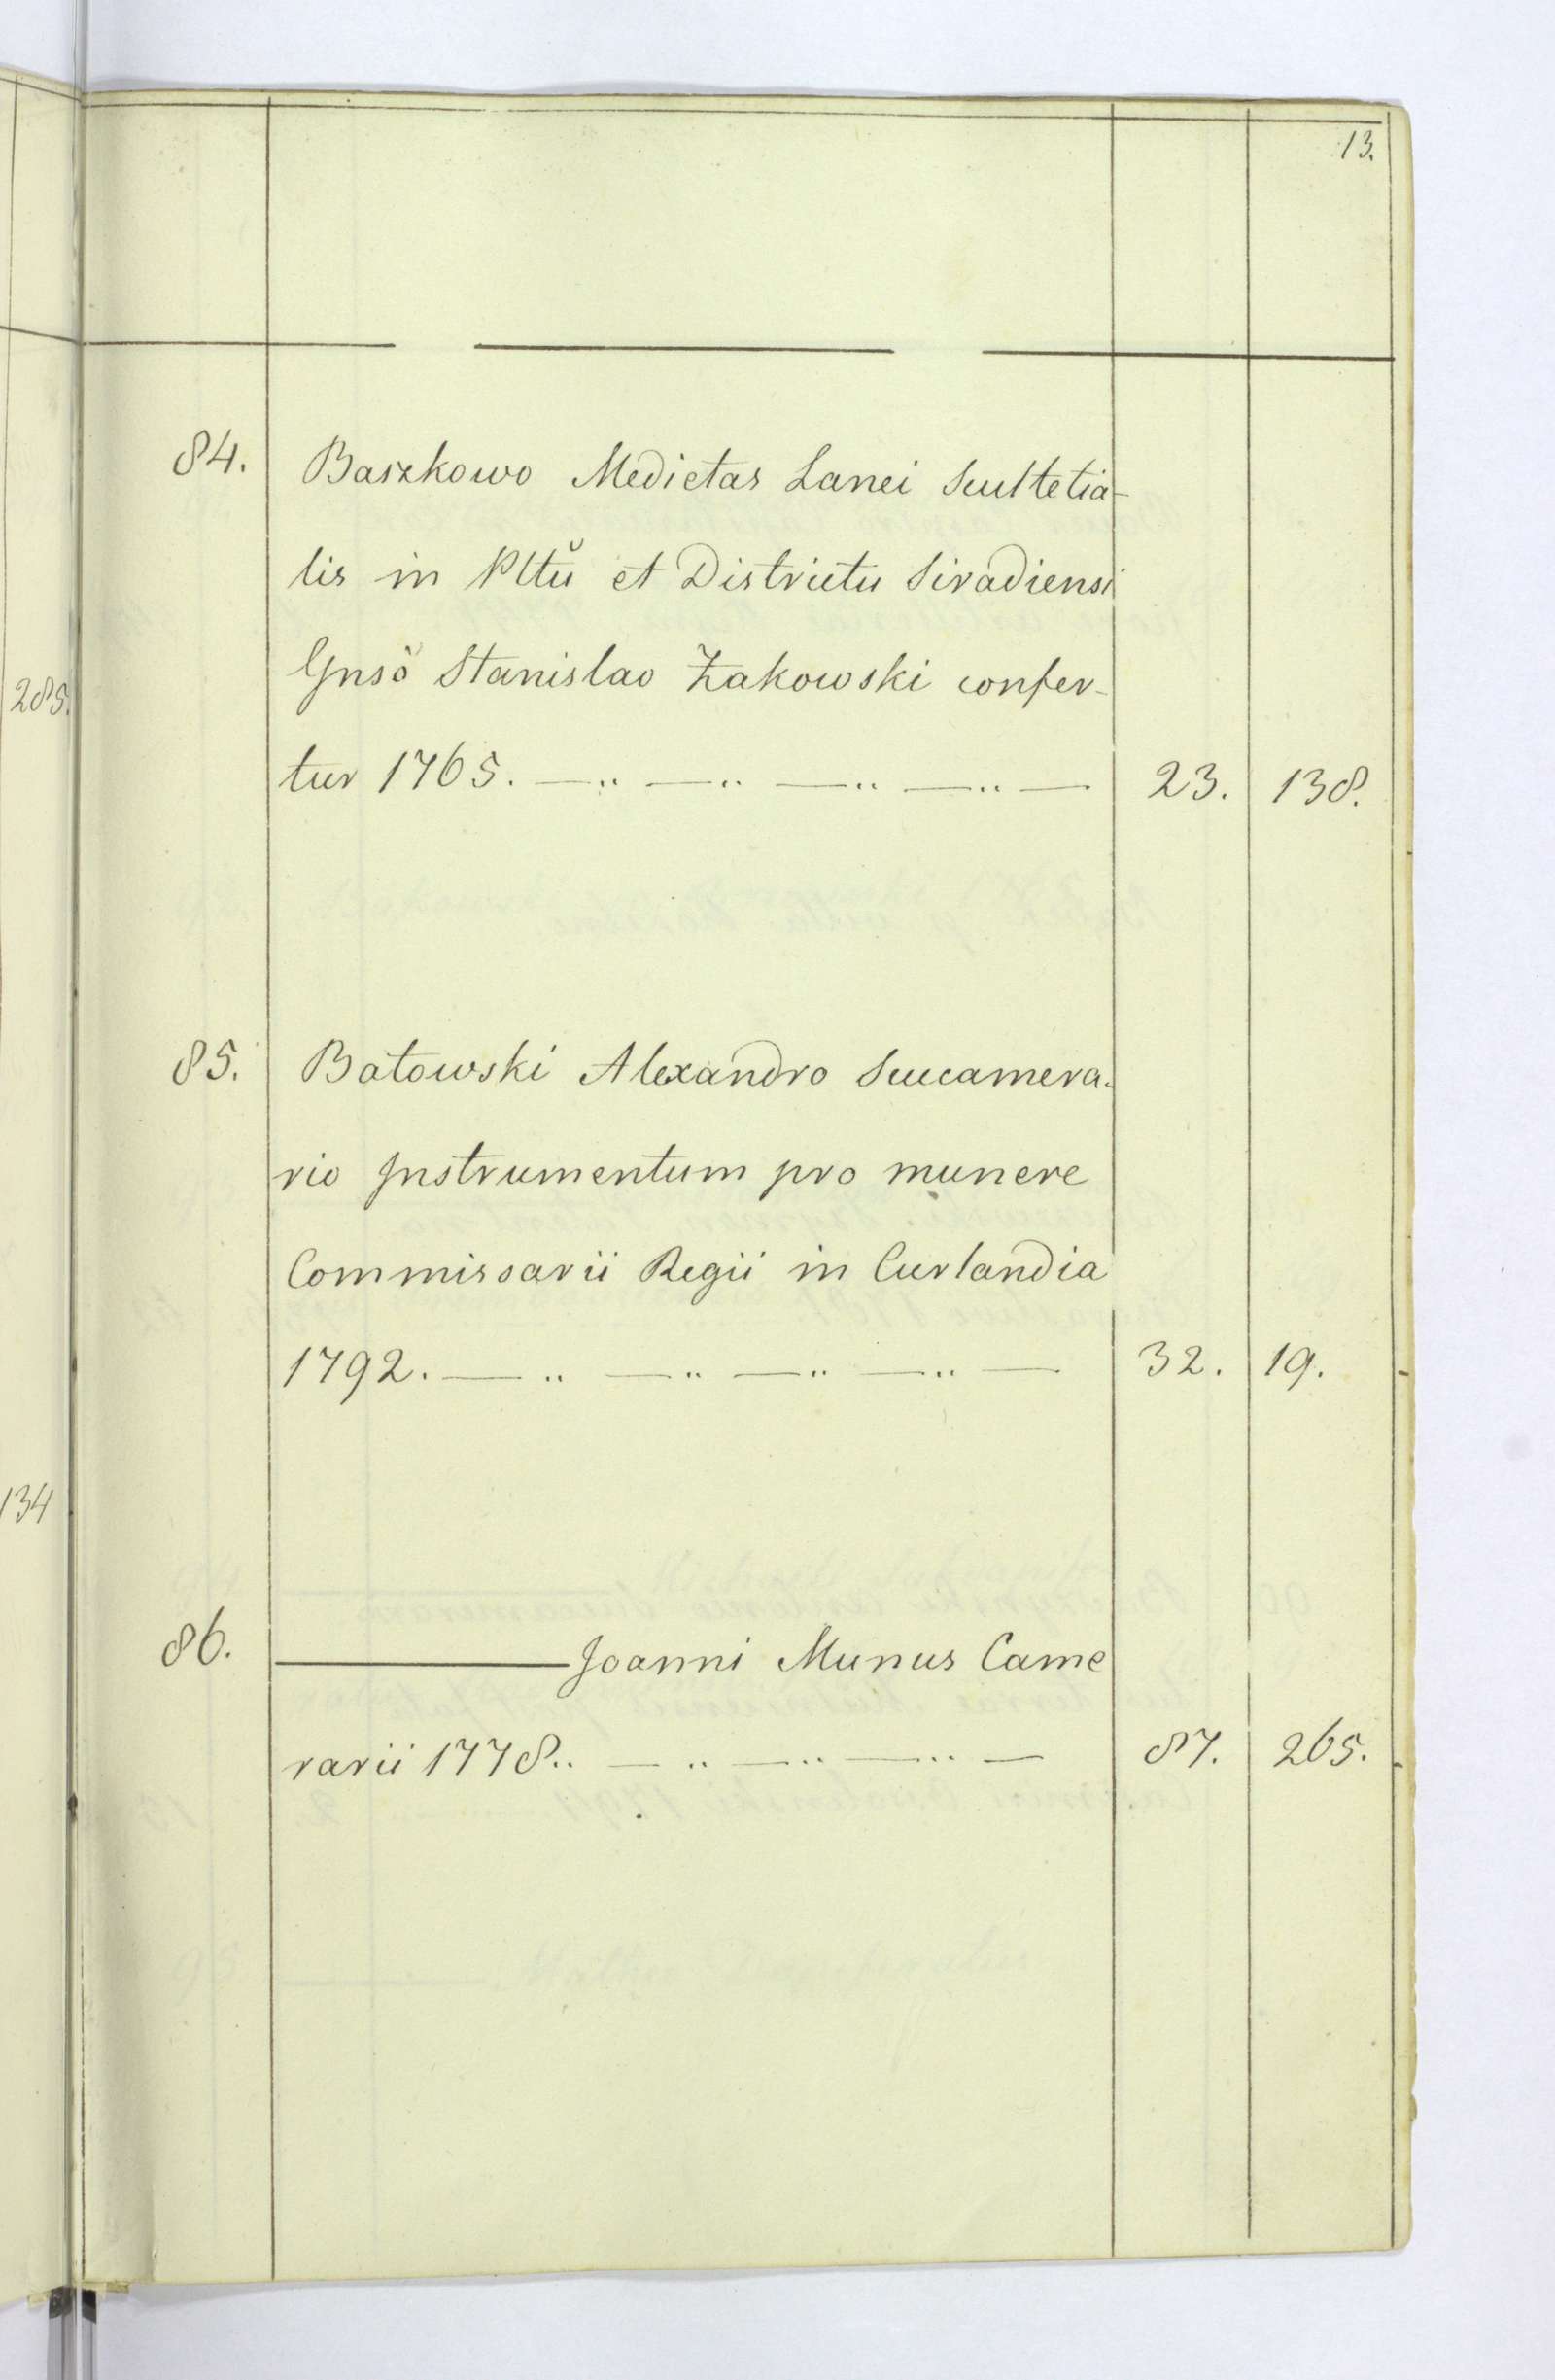 13.
84. Baszkowo Medietas Lanei Scultetia-
lis in Pltŭ et Districtu Siradiensi
Gnsŏ Stanislao Żakowski confer-
tur 1765. —„ —„ —„ —„ — 23. 138.
85. Batowski Alexandro Succamera-
rio Instrumentum pro munere
Commissarii Regii in Curlandia
1792. — „ —„ —„ —„ — 32. 19.
86. ——— Joanni Munus Came
rarii 1778.. — „ —„ —„ — 87. 265.
285.
134